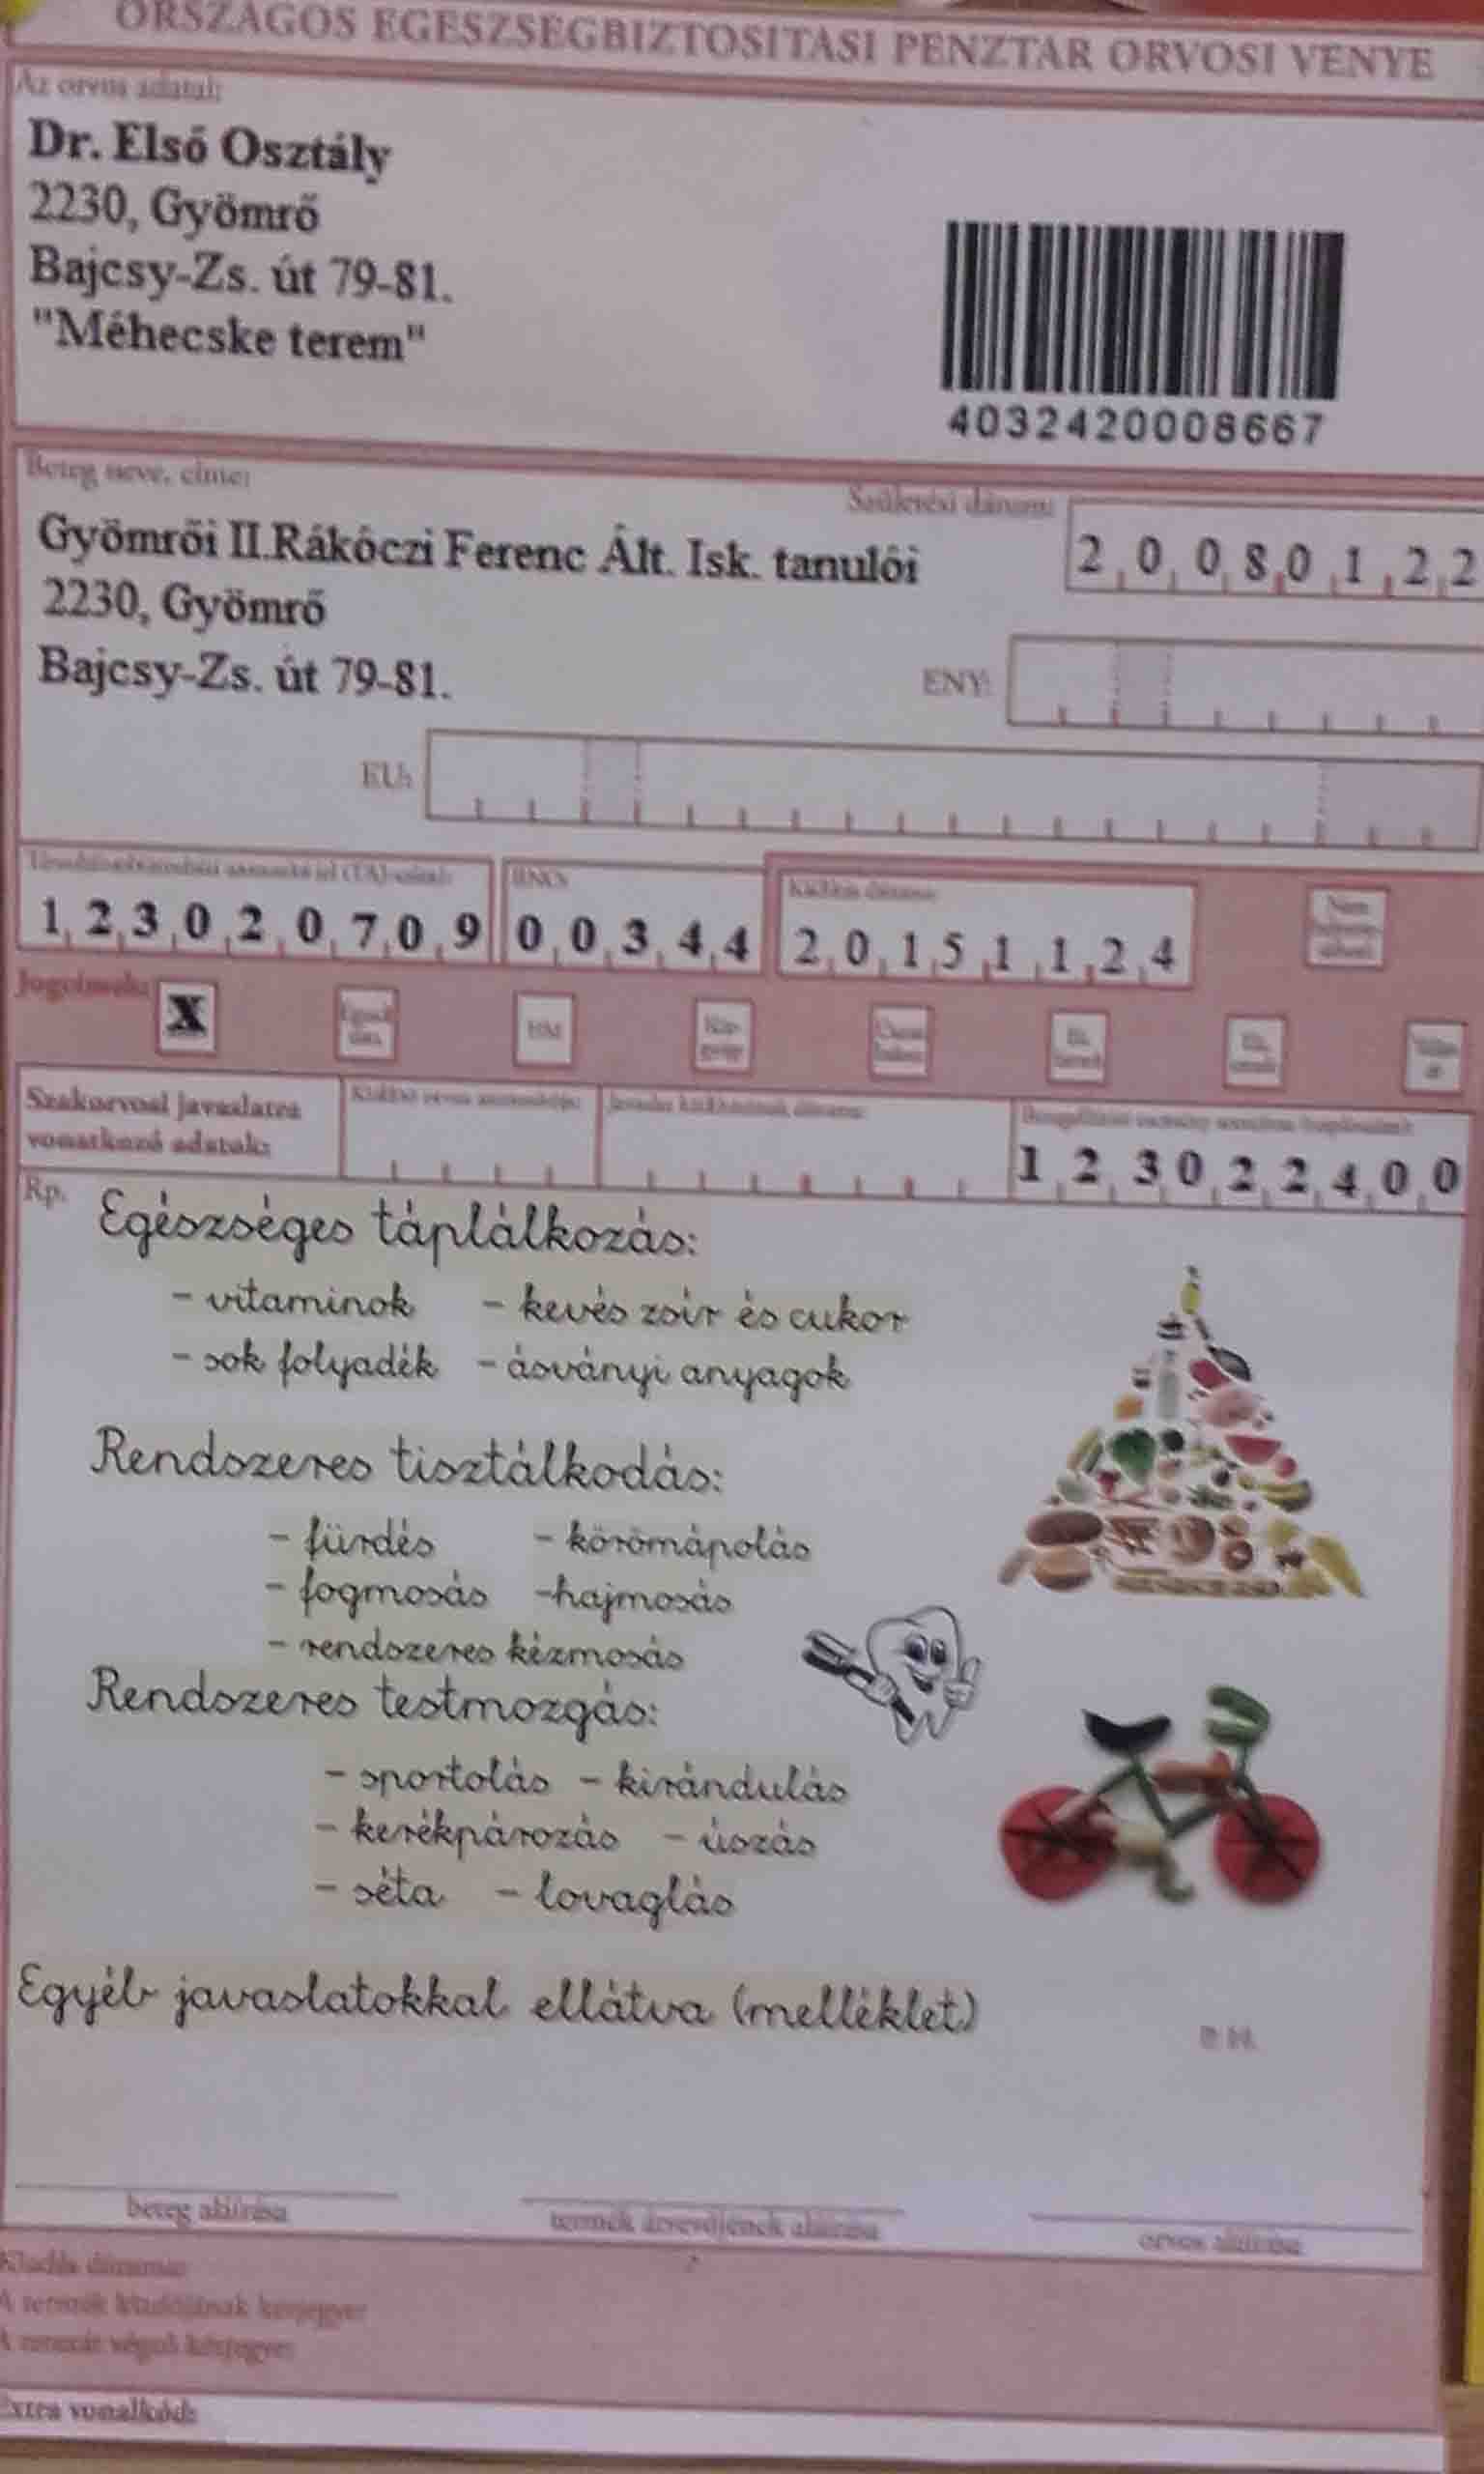 ORSZÁGOS EGÉSZSÉGBIZTOSÍTÁSI PÉNZTÁR ORVOSI VÉNYE
Az orvos adatai:
Dr. Első Osztály
2230, Gyömrő
Bajcsy-Zs. út 79-81.
"Méhecske terem"
4032420008667
Beteg neve, címe:
Születési dátum:
Gyömrői II.Rákóczi Ferenc Ált. Isk. tanulói
20080122
2230, Gyömrő
Bajcsy-Zs. út 79-81.
ENY:
EU:
Kiállítás dátuma:
123020709 00344 20151124
Jogcímek:
X
HM
Szakorvosi javaslatra
vonatkozó adatok:
123022400
Rp.
Egészséges táplálkozás:
- vitaminok - kevés zsír és cukor
- sok folyadék - ásványi anyagok
Rendszeres tisztálkodás:
- fürdés - körömápolás
- fogmosás -hajmosás
- rendszeres kézmosás
Rendszeres testmozgás:
- sportolás - kirándulás
- kerékpározás - úszás
- séta - lovaglás
Egyéb javaslatokkal ellátva (melléklet)
P. H.
beteg aláírása
termék átvevőjének aláírása
orvos aláírása
Kiadás dátuma:
A termék kiadójának kézjegye:
Extra vonalkód: